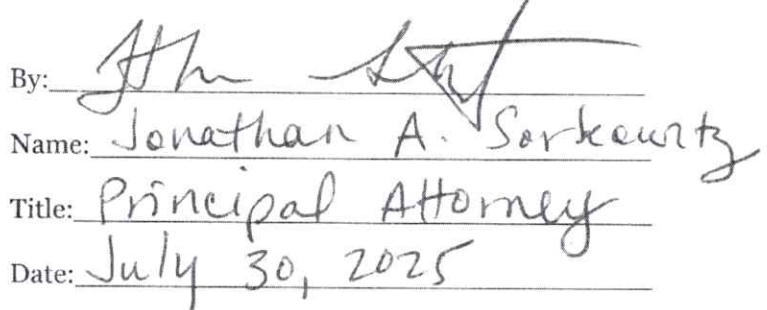 By:
Name: Jonathan A. Sorkowitz
Title: Principal Attorney
Date: July 30, 2025